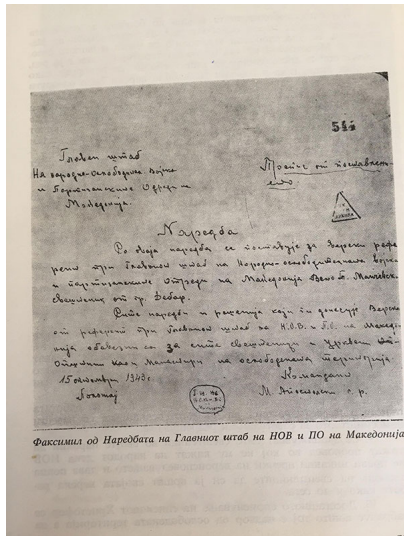 544
Главен штаб
На народно-ослободителна војка
и Партизанските Одреди на
Македонија.
Препис от поставлението
Наредба
Со оваја наредба се поставује за Верски рефе
рент при Главниот штаб на Народно-ослободителната војска
и партизанските Отреди на Македонија Велјо Манчевски
свештеник от гр. Дебар.
Сите наредби и решенија који ги донесује Верски
от референт при Главниот штаб на Н.О.В. и П.О. на Македо
нија обавезни се за сите свештеници и цркве
Општини како Манастири на ослободената територија.
15 октомври 1943 г.
Командант
М. Апостолски с. р.
Факсимил од Наредбата на Главниот штаб на НОВ и ПО на Македонија